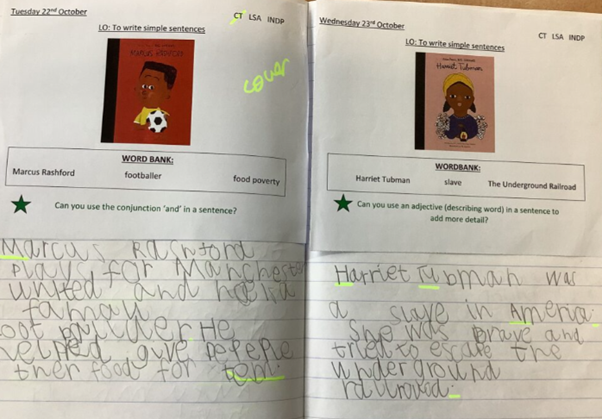 Tuesday 22nd October
CT LSA INDP
LO: To write simple sentences
cover
MARCUS RASHFORD
WORD BANK:
Marcus Rashford footballer food poverty
Can you use the conjunction 'and' in a sentence?
Marcus Rashford
plays for Manchester
united and
famau
He
helped give pepeple
ther food for tem.
Wednesday 23rd October
CT LSA INDP
LO: To write simple sentences
Harriet Tubman
WORDBANK:
Harriet Tubman slave The Underground Railroad
Can you use an adjective (describing word) in a sentence to
add more detail?
Harriet Tubman was
a slave in America.
She was brave and
tried to escate the
underground